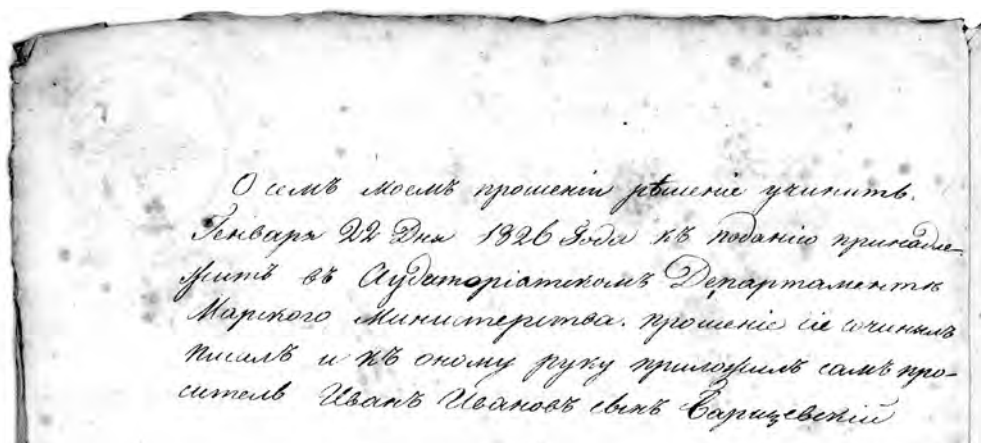 О семъ моемъ прошеніи рѣшеніе учинить.
Генваря 22 дня 1826 Года къ поданію принадле-
житъ въ Аудиторіатскомъ Департаментѣ
Марского Министерства. прошеніе сіе сочинялъ
писалъ и къ оному руку приложилъ самъ про-
ситель Иванъ Ивановъ сынъ